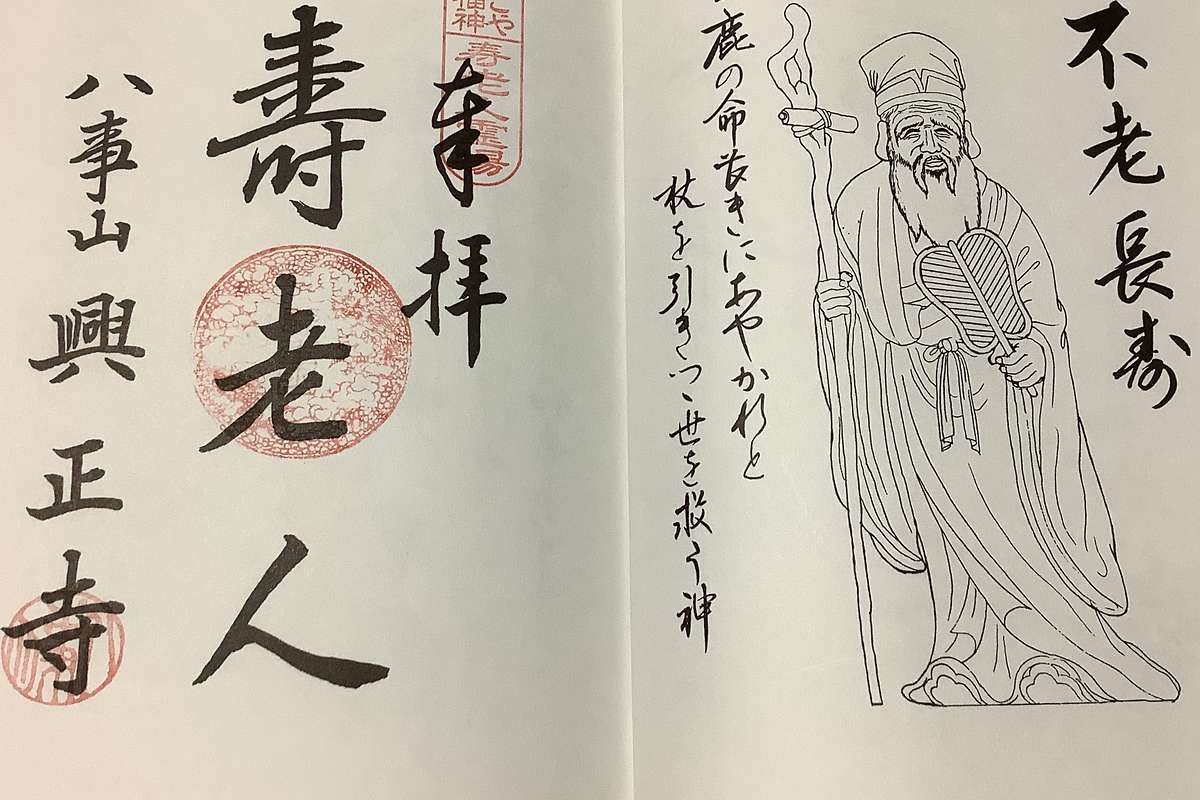 不老長寿
鹿の命長きにあやかれと
杖を引きつゝ世を救う神
や
福神
寿老人霊場
奉拝
壽老人
八事山 興正寺